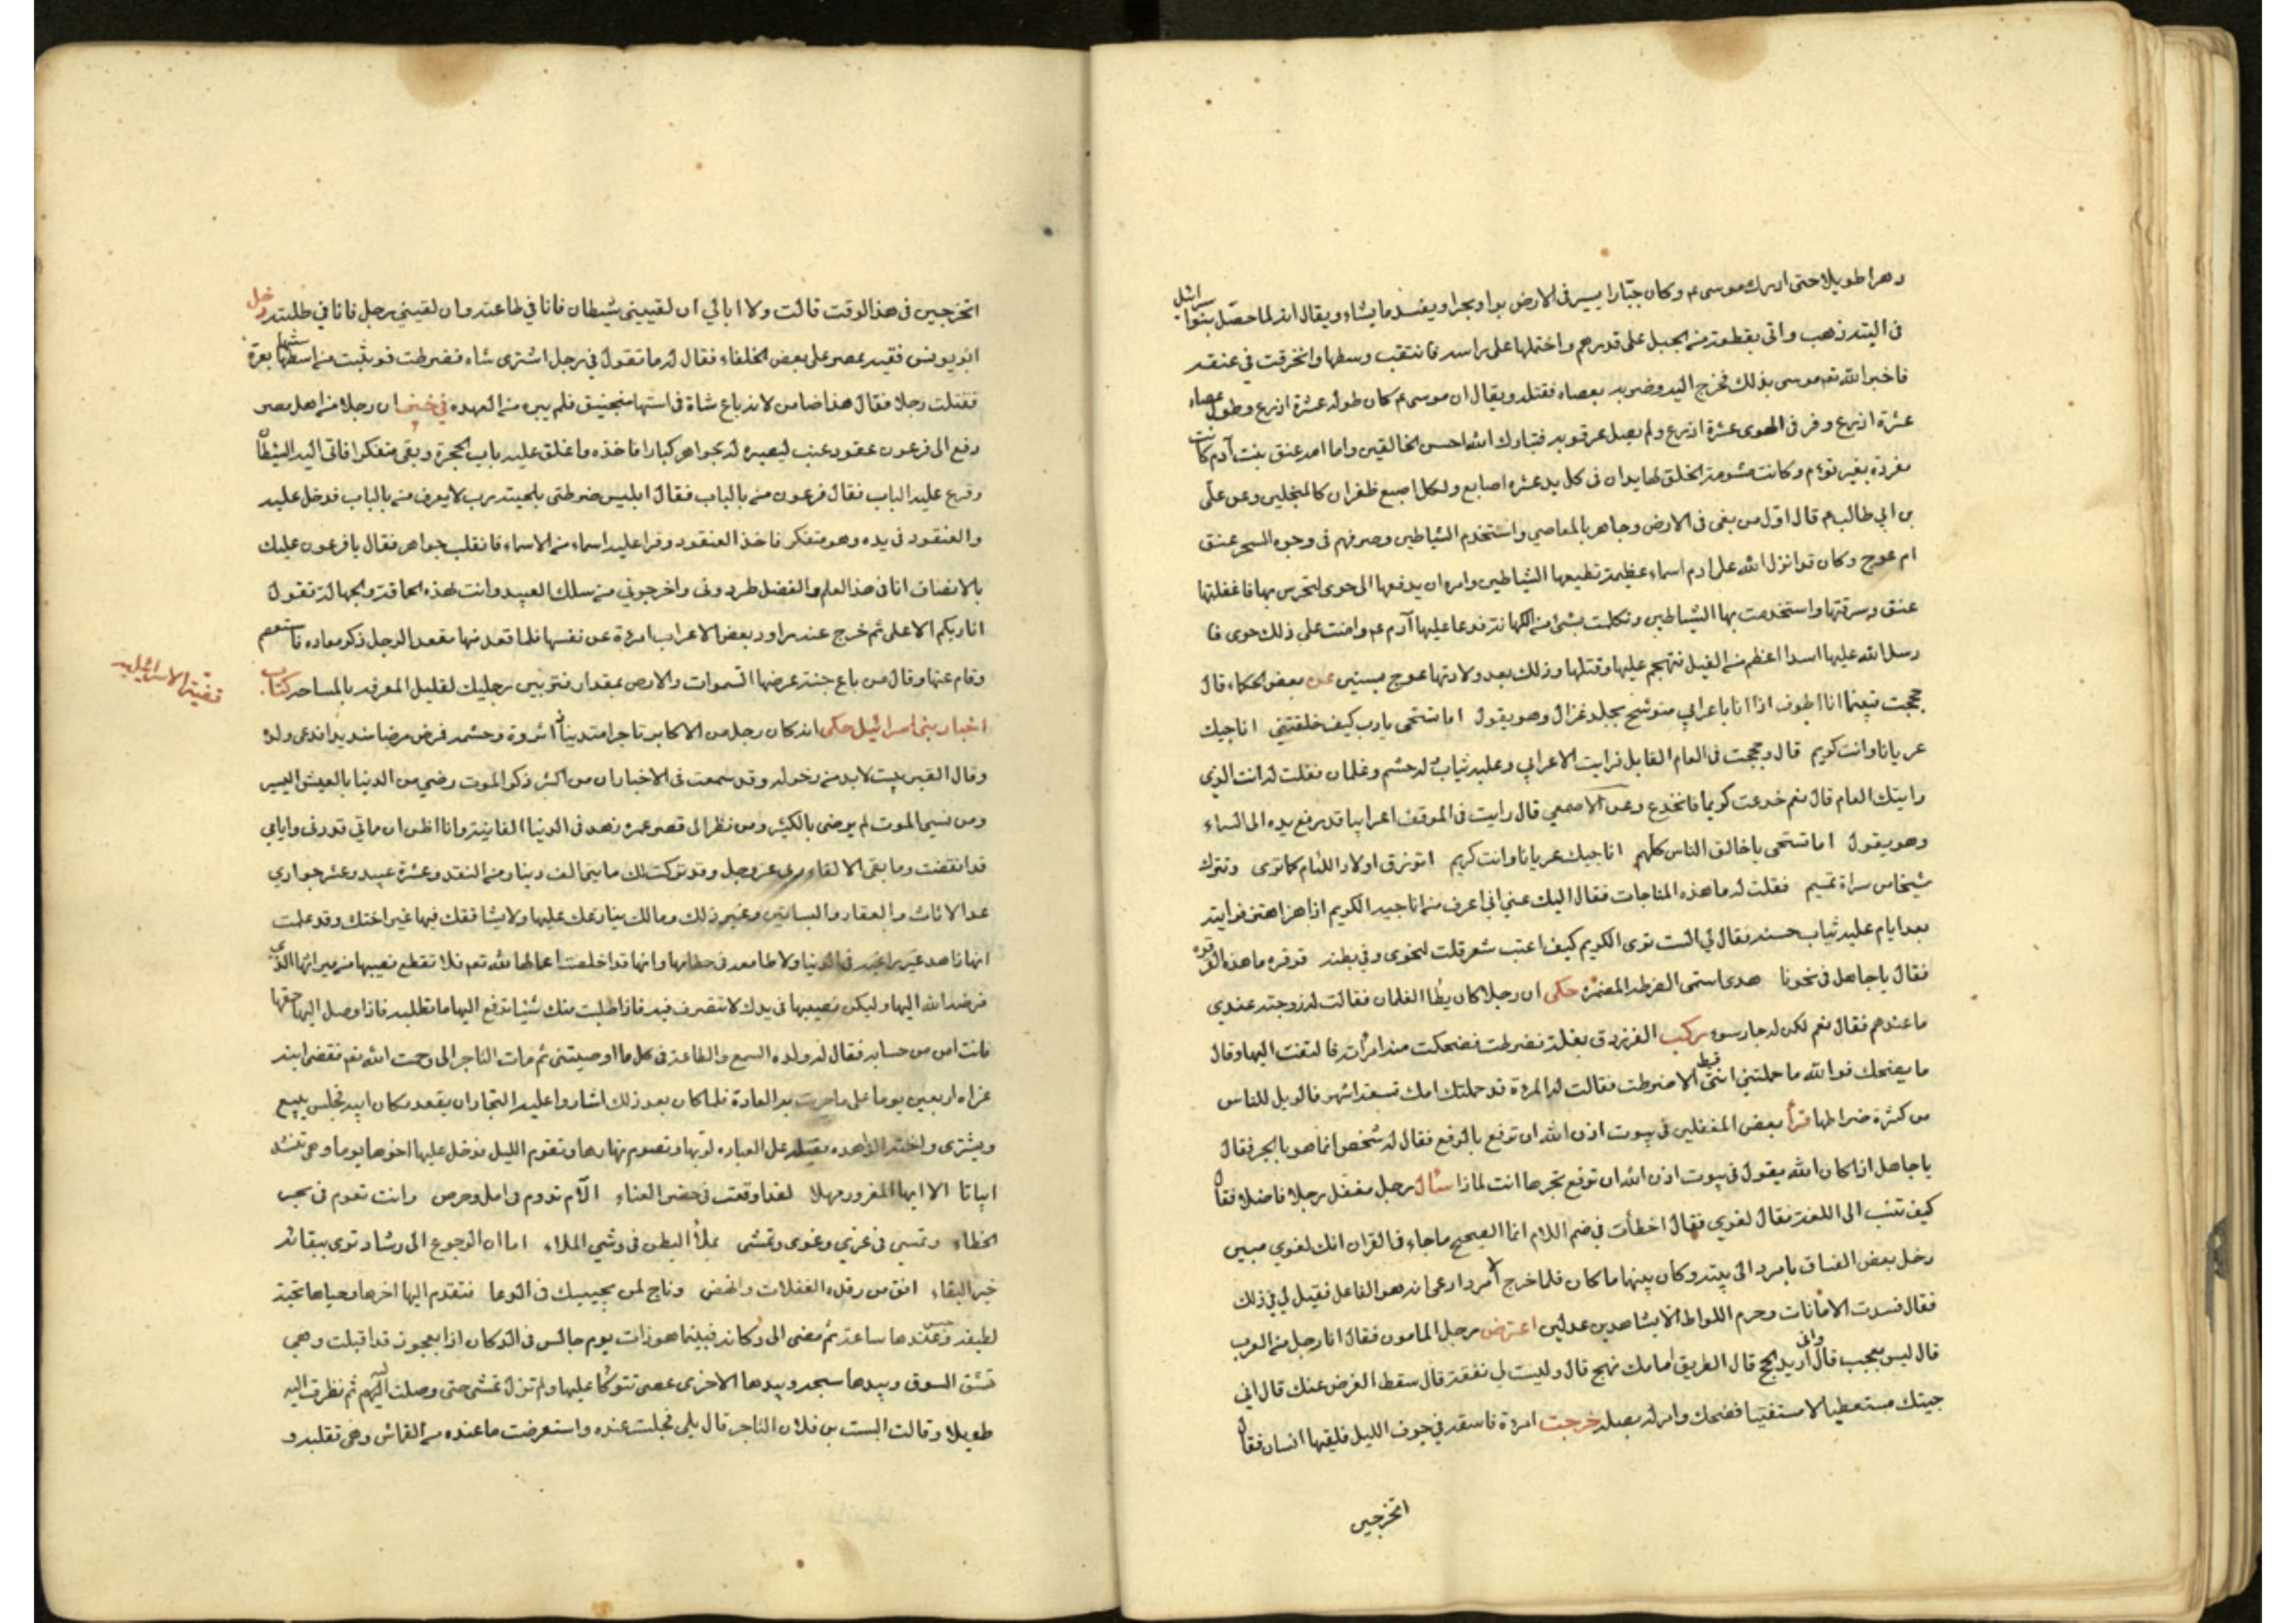 دهرا طويلا حتى ادرك موسى ء م وكان جبّارا يسير فى الارض برا وبحرا ويفسد ما يشاء ويقال انه لما حصّل بنوا سرائيل
فى التيه ذهب واتى بقطعة من الجبل على قدرهم واحتملها على راسه فانتقب وسطها وانخرقت في عنقه
فاخبر الله تعم موسى بذلك فخرج اليه وضربه بعصاه فقتله ويقال ان موسى ء م كان طوله عشرة اذرع وطول عصاه
عشرة اذرع وفر فى الهوى عشرة اذرع ولم يصل عرقوبه فتبارك الله احسن الخالقين واما امه عنق بنت آدم كانت
مفردة بغير توءم وكانت مشومة الخلق لها يدان فى كل يد عشره اصابع ولكل اصبع ظفران كالمنجلين وعن على
بن ابي طالب ء م قال اوّل من بغى فى الارض وجاهر بالمعاصي واستخدم الشياطين وصرفهم فى وجوه السحر عنق
ام عوج وكان قد انزل الله على ادم اسماء عظيمة تطيعها الشياطين وامره ان يدفعها الى حوى لتحرس بها فاغفلتها
عنق وسرقتها واستخدمت بها الشياطين وتكلمت بشئ من الكهانة فدعا عليها آدم عم وامنت على ذلك حوى فا
رسل الله عليها اسدا اعظم من الفيل فتهجم عليها وقتلها وذلك بعد ولادتها عوج بسنين عن بعض الحكماء قال
حججت فبينما انا اطوف اذا انا باعرابي متوشح بجلد غزال وهو يقول اما تستحى يا رب كيف خلقتني اناجيك
عريانا وانت كريم قال وحججت فى العام القابل فرايت الاعرابي وعليه ثياب له حشم وغلمان فقلت له انت الذي
رايتك العام قال نعم خدعت كريما فانخدع وعن الاصمعي قال رايت فى الموقف اعرابيا قد رفع يده الى السماء
وهو يقول اما تستحى يا خالق الناس كلهم اناجيك عريانا وانت كريم اترزق اولاد اللئام كما ترى وتترك
شيخا من سراة تميم فقلت له ما هذه المناجات فقال اليك عني انى اعرف من اناجيه الكريم اذا هز اهتز فرايته
بعد ايام عليه ثياب حسنه فقال لي الست ترى الكريم كيف اعتب شعر قلت لنحوى وفي بطنه قرقره ما هذه القرقره
فقال يا جاهل فى نحونا هدى استمى الضرطه المضمره حكى ان رجلا كان يطأ الغلمان فقالت له زوجته عندي
ما عندهم فقال نعم لكن له جار سوء ركب الفرزدق بغلة فضرطت فضحكت منه امرأة فالتفت اليها وقال
ما يضحك فوالله ما حملتني انثى قط الا ضرطت فقالت له المرءة قد حملتك امك تسعة اشهر فالويل للناس
من كثرة ضراطها قرأ بعض المغفلين فى بيوت اذن الله ان ترفع بالرفع فقال له شخص انما هو بالجر فقال
يا جاهل اذا كان الله يقول فى بيوت اذن الله ان ترفع تجرها انت لماذا سأل رجل مغفل رجلا فاضلا فقال
كيف تنسب الى اللغة فقال لغوي فقال اخطأت في ضم اللام انما الصحيح ما جاء فى القران انك لغوي مبين
دخل بعض الفساق بامرد الى بيته وكان بينهما ما كان فلما خرج الامرد ادعى انه هو الفاعل فقيل لي في ذلك
فقال فسدت الامانات وحرم اللواط الا بشاهدين عدلين اعترض رجل المامون فقال انا رجل من العرب
قال ليس بعجب قال وانى اريد الحج قال الطريق امامك نهج قال وليست لي نفقة قال سقط الفرض عنك قال اني
جيتك مستعطيا لا مستفتيا فضحك وامر له بصله خرجت امرءة فاسقه في جوف الليل فلقيها انسان فقال
اتخرجين
اتخرجين فى هذا الوقت قالت ولا ابالي ان لقيني شيطان فانا في طاعته وان لقيني رجل فانا في طلبته دخل
ابو يونس فقيه بمصر على بعض الخلفاء فقال له ما تقول في رجل اشترى شاة فضرطت فوثبت من استها بعرة
فقتلت رجلا فقال هذا ضامن لانه باع شاة فى استها منجنيق فلم يبره من العهده ان رجلا من اهل مصر
دفع الى فرعون عنقود عنب ليصيره له بجواهر كبارا فاخذه واغلق عليه باب الحجرة وبقى متفكرا فاتى اليه الشيطان
وقرع عليه الباب فقال فرعون من بالباب فقال ابليس ضرطتى بلحيته رب لا يعرف من بالباب فدخل عليه
والعنقود فى يده وهو متفكر فاخذ العنقود وقرا عليه اسماء من الاسماء فانقلب جواهر فقال يا فرعون عليك
بالانصاف انا فى هذا العلم والفضل طردونى واخرجوني من سلك العبيد وانت بهذه الحماقة والجهالة تقول
انا ربكم الاعلى ثم خرج عنه راود بعض الاعراب امرءة عن نفسها فلما قعد منها مقعد الرجل ذكر معاده فاستعصم
وقام عنها وقال من باع جنة عرضها السموات والارض بمقدار فتر بين رجليك لقليل المعرفه بالمساحه كتاب
قضية الاسرائيليه
اخبار بنى اسرائيل حكى انه كان رجل من الاكابر تاجرا متدينا ذا ثروة وحشمه فمرض مرضا شديدا فدعى ولده
وقال القبر بيت لابد من دخوله وقد سمعت فى الاخبار ان من اكثر ذكر الموت رضي من الدنيا بالعيش اليسير
ومن نسي الموت لم يرضى بالكثير ومن نظر الى قصر عمره زهد فى الدنيا الفانية وانا اظن ان مماتي قد دنى وايامي
قد انقضت وما بقى الا لقاء ربى عز وجل وقد تركت لك مايتى الف دينار من النقد وعشرة عبيد وعشر جواري
عدا الاثاث والعقار والبساتين وغير ذلك ومالك ينازعك عليها ولا يشاققك فيها غير اختك وقد علمت
انها زاهده غير راغبه فى الدنيا ولا طامعه فى حطامها وانها قد اخلصت اعمالها لله تعم فلا تقطع نصيبها من ميراثها الذى
فرضه الله اليها وليكن نصيبها فى يدك لا تتصرف فيه فاذا طلبت منك شيئا تدفع اليها ما تطلبه فاذا وصل اليها حقها
فانت امن من حسابه فقال له ولده السمع والطاعة فى كل ما اوصيتنى ثم مات التاجر الى رحمت الله تعم فقضى ابنه
عزاه اربعين يوما على ما جرت به العادة فلما كان بعد ذلك اشاروا عليه التجار ان يقعد مكان ابيه فجلس يبيع
ويشترى واخته الزاهده مقبله على العباده لربها وتصوم نهارها وتقوم الليل فدخل عليها اخوها يوما وهى تنشد
ابياتا الا ايها المغرور مهلا لقد اوقعت فى حصر العناء الام تدوم فى امل وحرص وانت تعوم فى بحر
الخطاء وتمسى فى عزى وغوى وتمشى بملأ البطن فى وشي الملاء اما ان الرجوع الى رشاد ترى ببقائه
خير البقاء افق من رقدة الغفلات وانهض وناج لمن يجيبك فى الدعا فتقدم اليها اخوها وحياها بتحية
لطيفه وجلس عندها ساعة ثم مضى الى دكانه فبينما هو ذات يوم جالس فى الدكان اذا بعجوز قد اقبلت وهى
تشق السوق وبيدها سبحه وبيدها الاخرى عصى تتوكا عليها ولم تزل تمشى حتى وصلت اليه ثم نظرت اليه
طويلا وقالت الست بن فلان التاجر قال بلى فجلست عنده واستعرضت ما عنده من القماش وهى تقلبه و